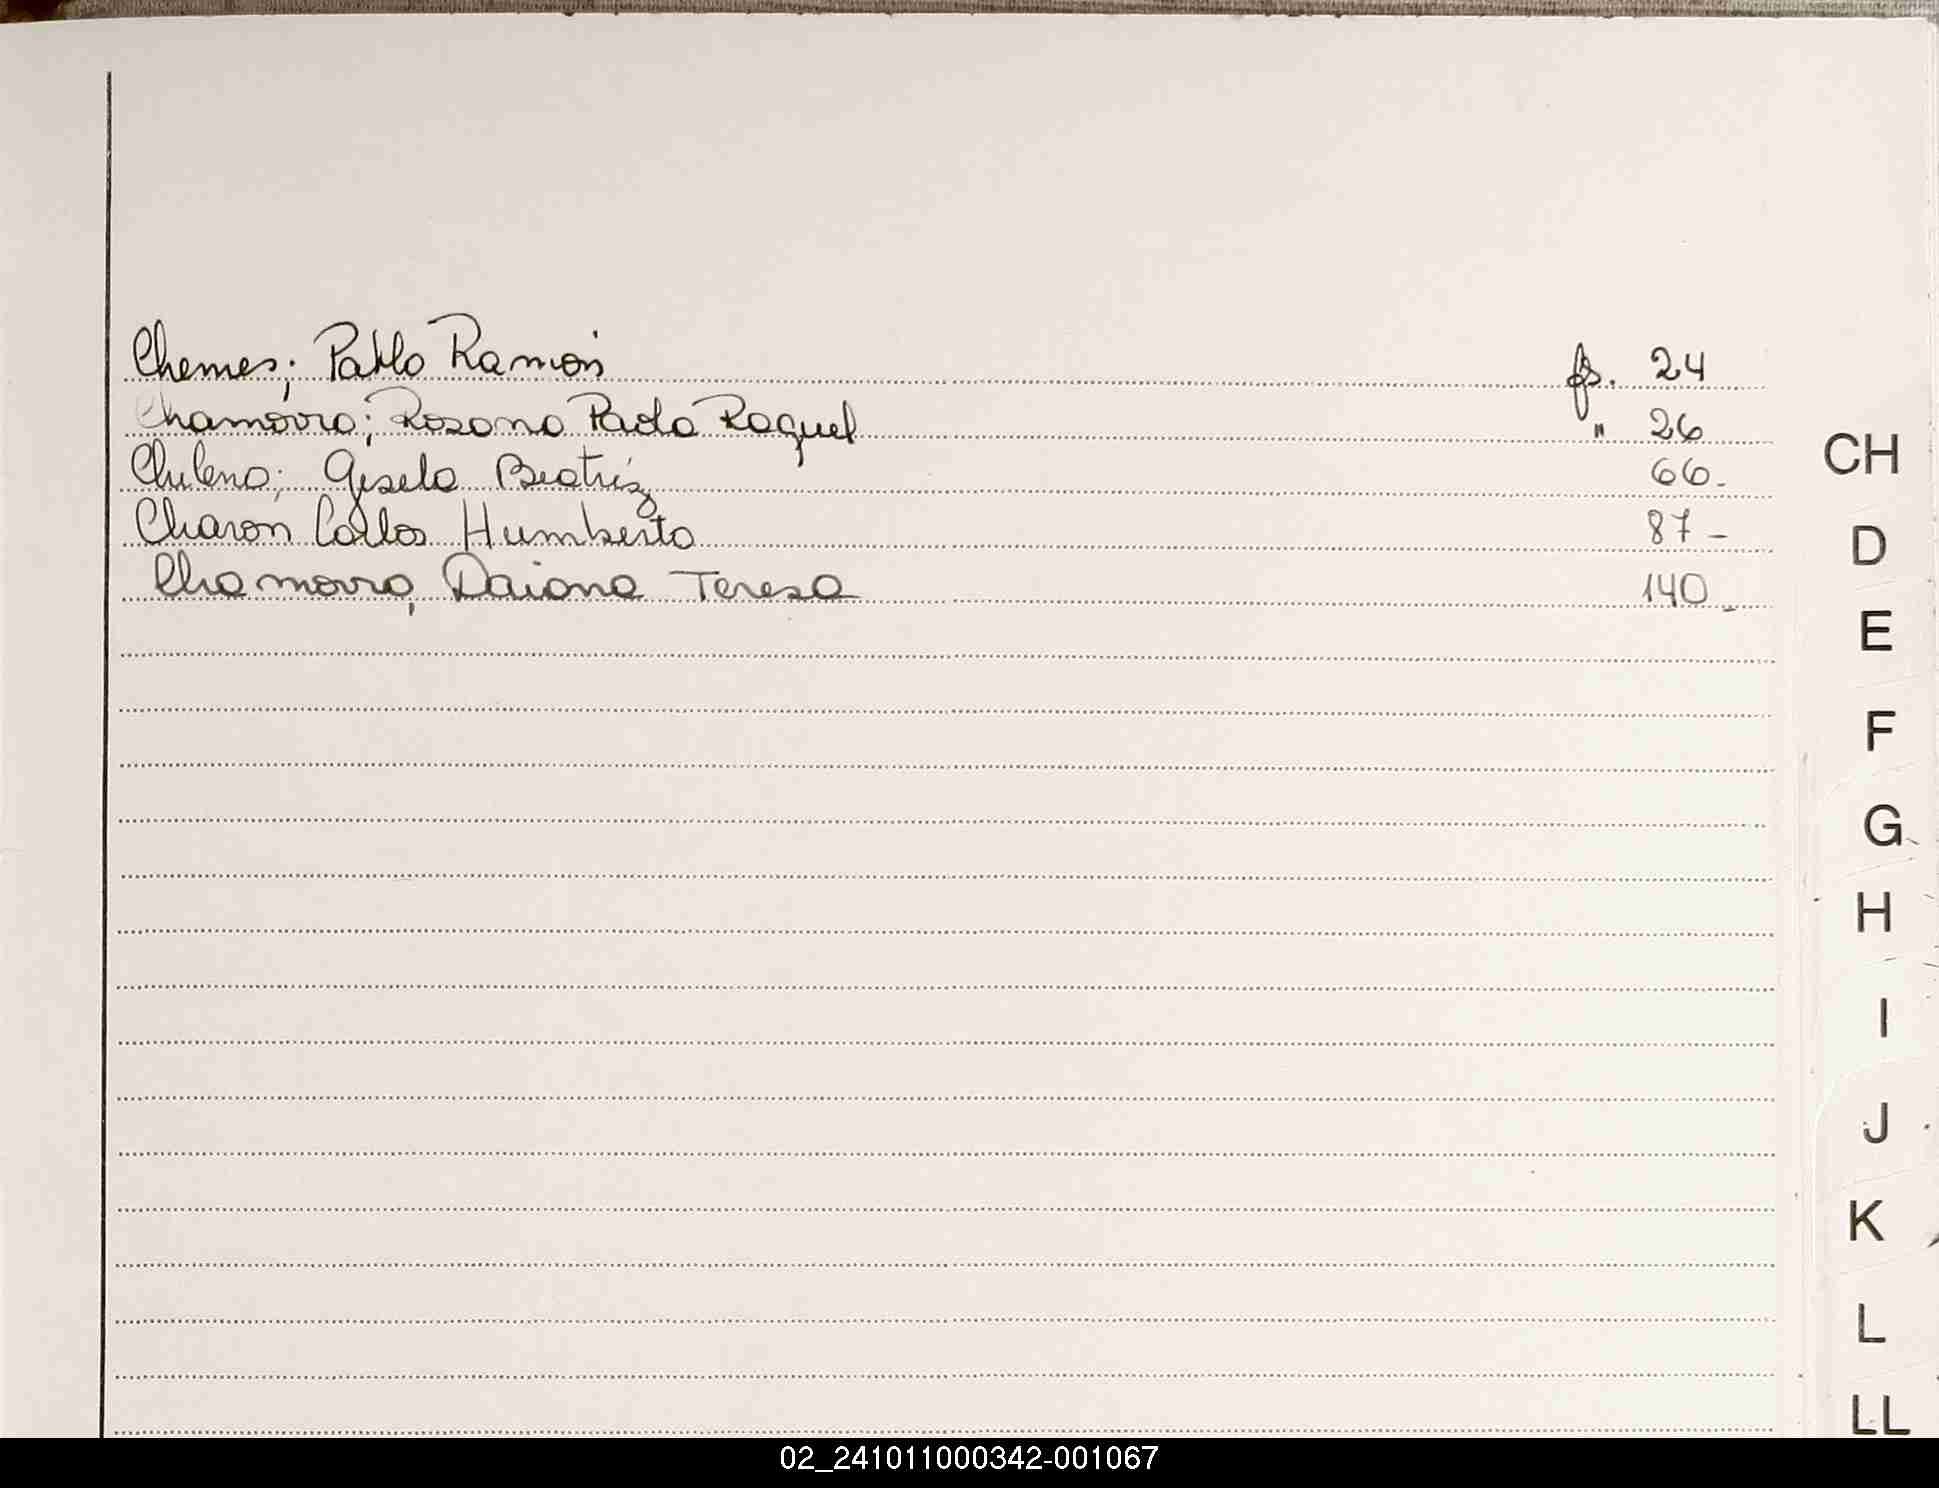 Chemes; Pablo Ramón fs. 24
Chamorro; Rosana Paola Raquel " 26
Chileno; Gisela Beatriz 66.
Charon Carlos Humberto 87 -
Chamorro, Daiana Teresa 140 -
CH
D
E
F
G
H
I
J
K
L
LL
02_241011000342-001067